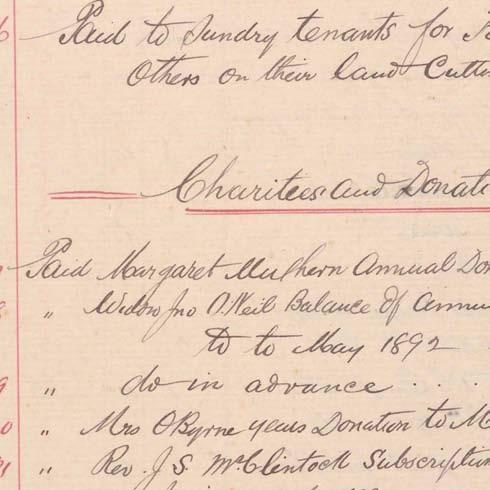 6 Paid to Sundry tenants for
Others on their land
Charitees and Donati
Paid Margaret Mulhern Annual Don
" Widow Jno O.Neil Balance of Annu
to to May 1892
9 " do in advance . . .
0 " Mrs O Byrne years Donation to M
" Rev. J. S. McClintock Subscription